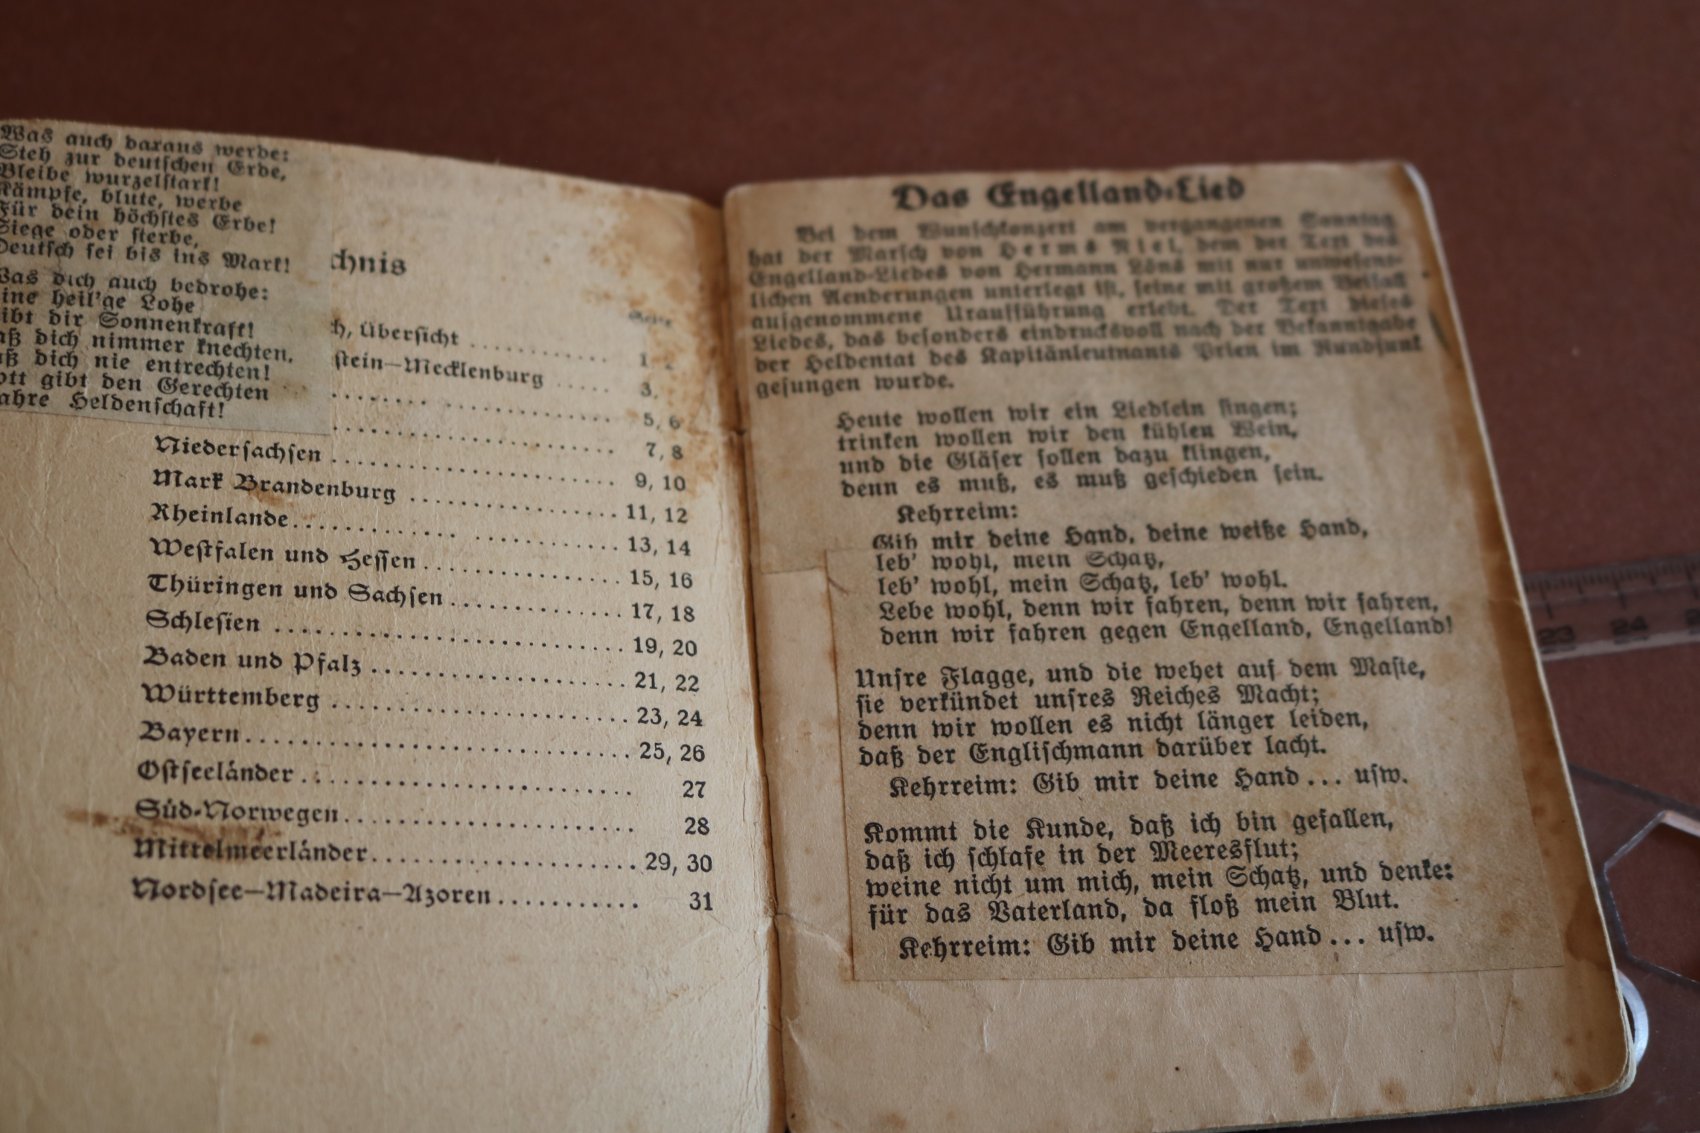 Was auch daraus werde:
Steh zur deutschen Erde,
Bleibe wurzelstark!
Kämpfe, blute, werbe
Für dein höchstes Erbe!
Siege oder sterbe,
Deutsch sei bis ins Mark!
Was dich auch bedrohe:
ine heil'ge Lohe
ibt dir Sonnenkraft!
aß dich nimmer knechten,
aß dich nie entrechten!
ott gibt den Gerechten
ahre Heldenschaft!
chnis
Seite
h, Übersicht 1
stein—Mecklenburg 3,
5, 6
7, 8
Niedersachsen 9, 10
Mark Brandenburg 11, 12
Rheinlande 13, 14
Westfalen und Hessen 15, 16
Thüringen und Sachsen 17, 18
Schlesien 19, 20
Baden und Pfalz 21, 22
Württemberg 23, 24
Bayern 25, 26
Ostseeländer 27
Süd-Norwegen 28
Mittelmeerländer 29, 30
Nordsee—Madeira—Azoren 31
Das Engelland-Lied
Bei dem Wunschkonzert am vergangenen Sonntag
hat der Marsch von Herms Niel, dem der Text des
Engelland-Liedes von Hermann Löns mit nur unwesent-
lichen Aenderungen unterlegt ist, seine mit großem Beifall
aufgenommene Uraufführung erlebt. Der Text dieses
Liedes, das besonders eindrucksvoll nach der Bekanntgabe
der Heldentat des Kapitänleutnants Prien im Rundfunk
gesungen wurde.
Heute wollen wir ein Liedlein singen;
trinken wollen wir den kühlen Wein,
und die Gläser sollen dazu klingen,
denn es muß, es muß geschieden sein.
Kehrreim:
Gib mir deine Hand, deine weiße Hand,
leb' wohl, mein Schatz,
leb' wohl, mein Schatz, leb' wohl.
Lebe wohl, denn wir fahren, denn wir fahren,
denn wir fahren gegen Engelland, Engelland!
Unsre Flagge, und die wehet auf dem Maste,
sie verkündet unsres Reiches Macht;
denn wir wollen es nicht länger leiden,
daß der Englischmann darüber lacht.
Kehrreim: Gib mir deine Hand... usw.
Kommt die Kunde, daß ich bin gefallen,
daß ich schlafe in der Meeresflut;
weine nicht um mich, mein Schatz, und denke:
für das Vaterland, da floß mein Blut.
Kehrreim: Gib mir deine Hand... usw.
23 24